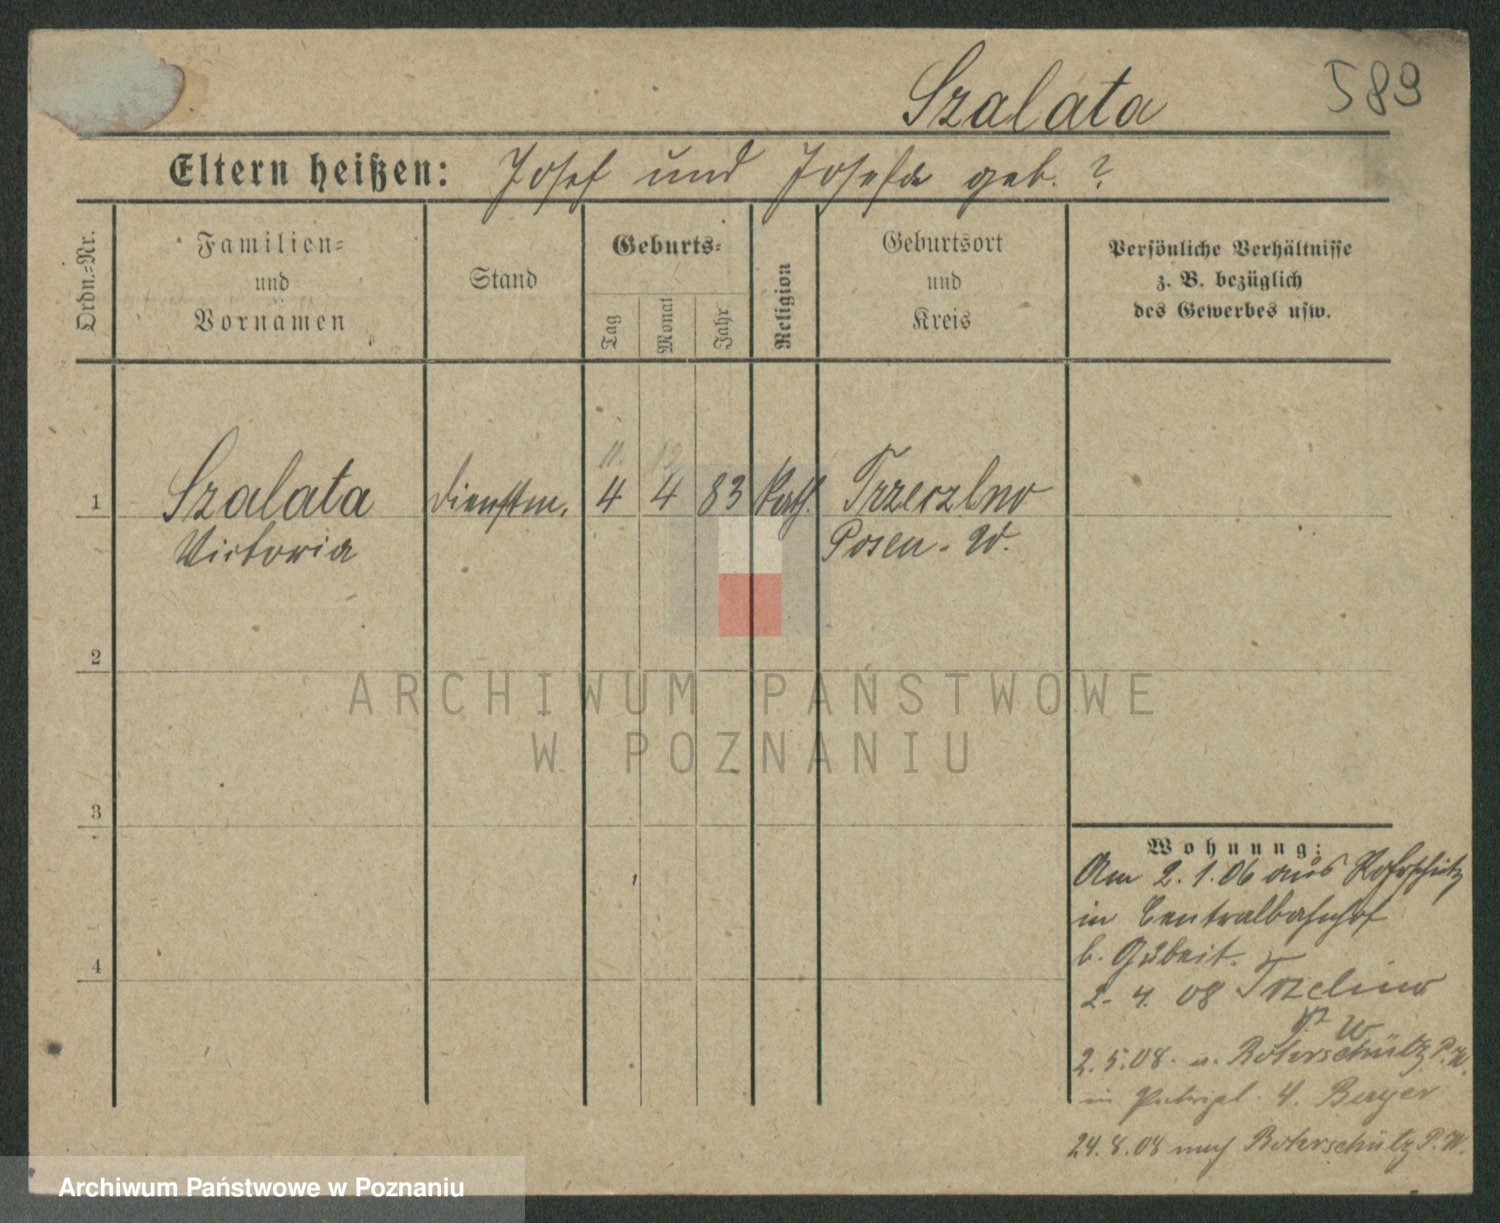 Szalata
589
Eltern heißen: Josef und Josefa geb. ?
Ordn.=Nr.
Familien=
und
Vornamen
Stand
Geburts=
Tag
Monat
Jahr
Religion
Geburtsort
und
Kreis
Persönliche Verhältnisse
z. B. bezüglich
des Gewerbes usw.
11. 12
1 Szalata Dienstm. 4 4 83 kath. Trzeczlno
Victoria Posen. W.
2
3
4
Wohnung:
Am 2.1.06 aus Rohrschütz
in Centralbahnhof
b. Gubeit.
2. 4. 08 Trzelino
P. W
2.5.08. a. Rohrschütz P.W.
in 4. Beyer
24.8.08 nach Rohrschütz P.W.
ARCHIWUM PAŃSTWOWE
W POZNANIU
Archiwum Państwowe w Poznaniu